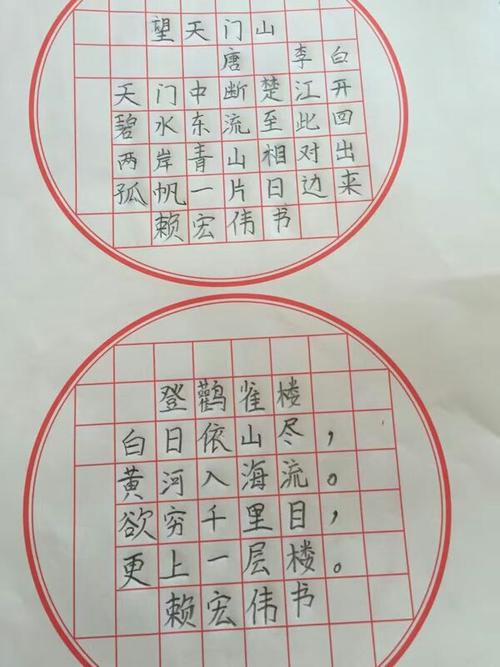 望天门山
唐 李白
天门中断楚江开
碧水东流至此回
两岸青山相对出
孤帆一片日边来
赖宏伟书
登鹳雀楼
白日依山尽，
黄河入海流。
欲穷千里目，
更上一层楼。
赖宏伟书